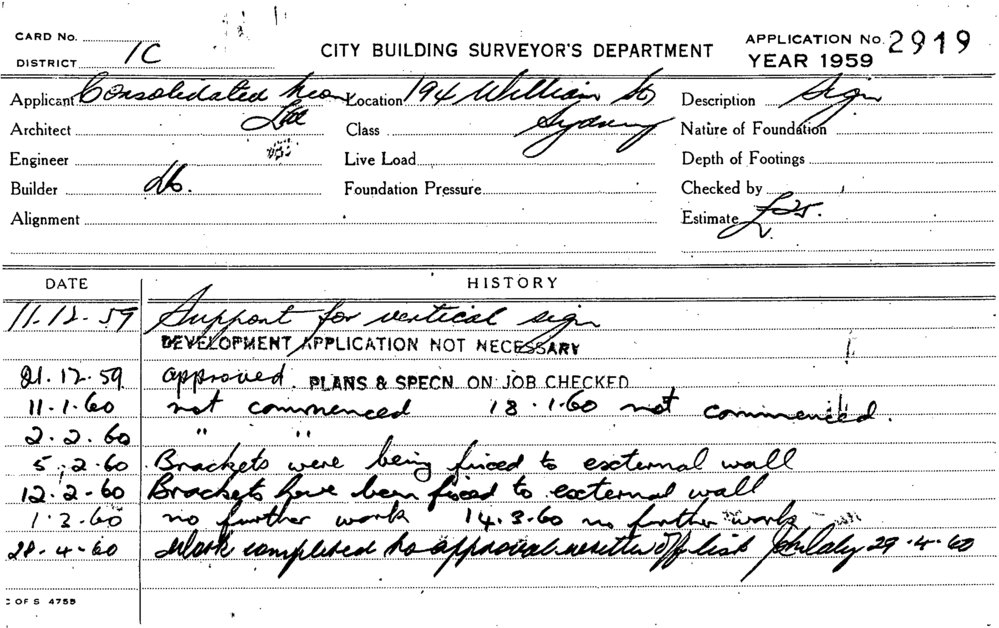 CARD No. CITY BUILDING SURVEYOR'S DEPARTMENT APPLICATION No. 2919
DISTRICT 1C YEAR 1959
Applicant Consolidated Neon Location 194 William St Description Sign
Architect Ltd Class Sydney Nature of Foundation
Engineer Live Load Depth of Footings
Builder do. Foundation Pressure Checked by
Alignment Estimate £25.
DATE HISTORY
11.12.59 Support for vertical sign
DEVELOPMENT APPLICATION NOT NECESSARY
21.12.59 approved. PLANS & SPECN. ON JOB CHECKED
11.1.60 not commenced 18.1.60 not commenced.
2.2.60 " "
5.2.60 Brackets were being fixed to external wall
12.2.60 Brackets have been fixed to external wall
1.3.60 no further work 14.3.60 no further work
28.4.60 Work completed to approval written off list 29.4.60
C OF S 4755